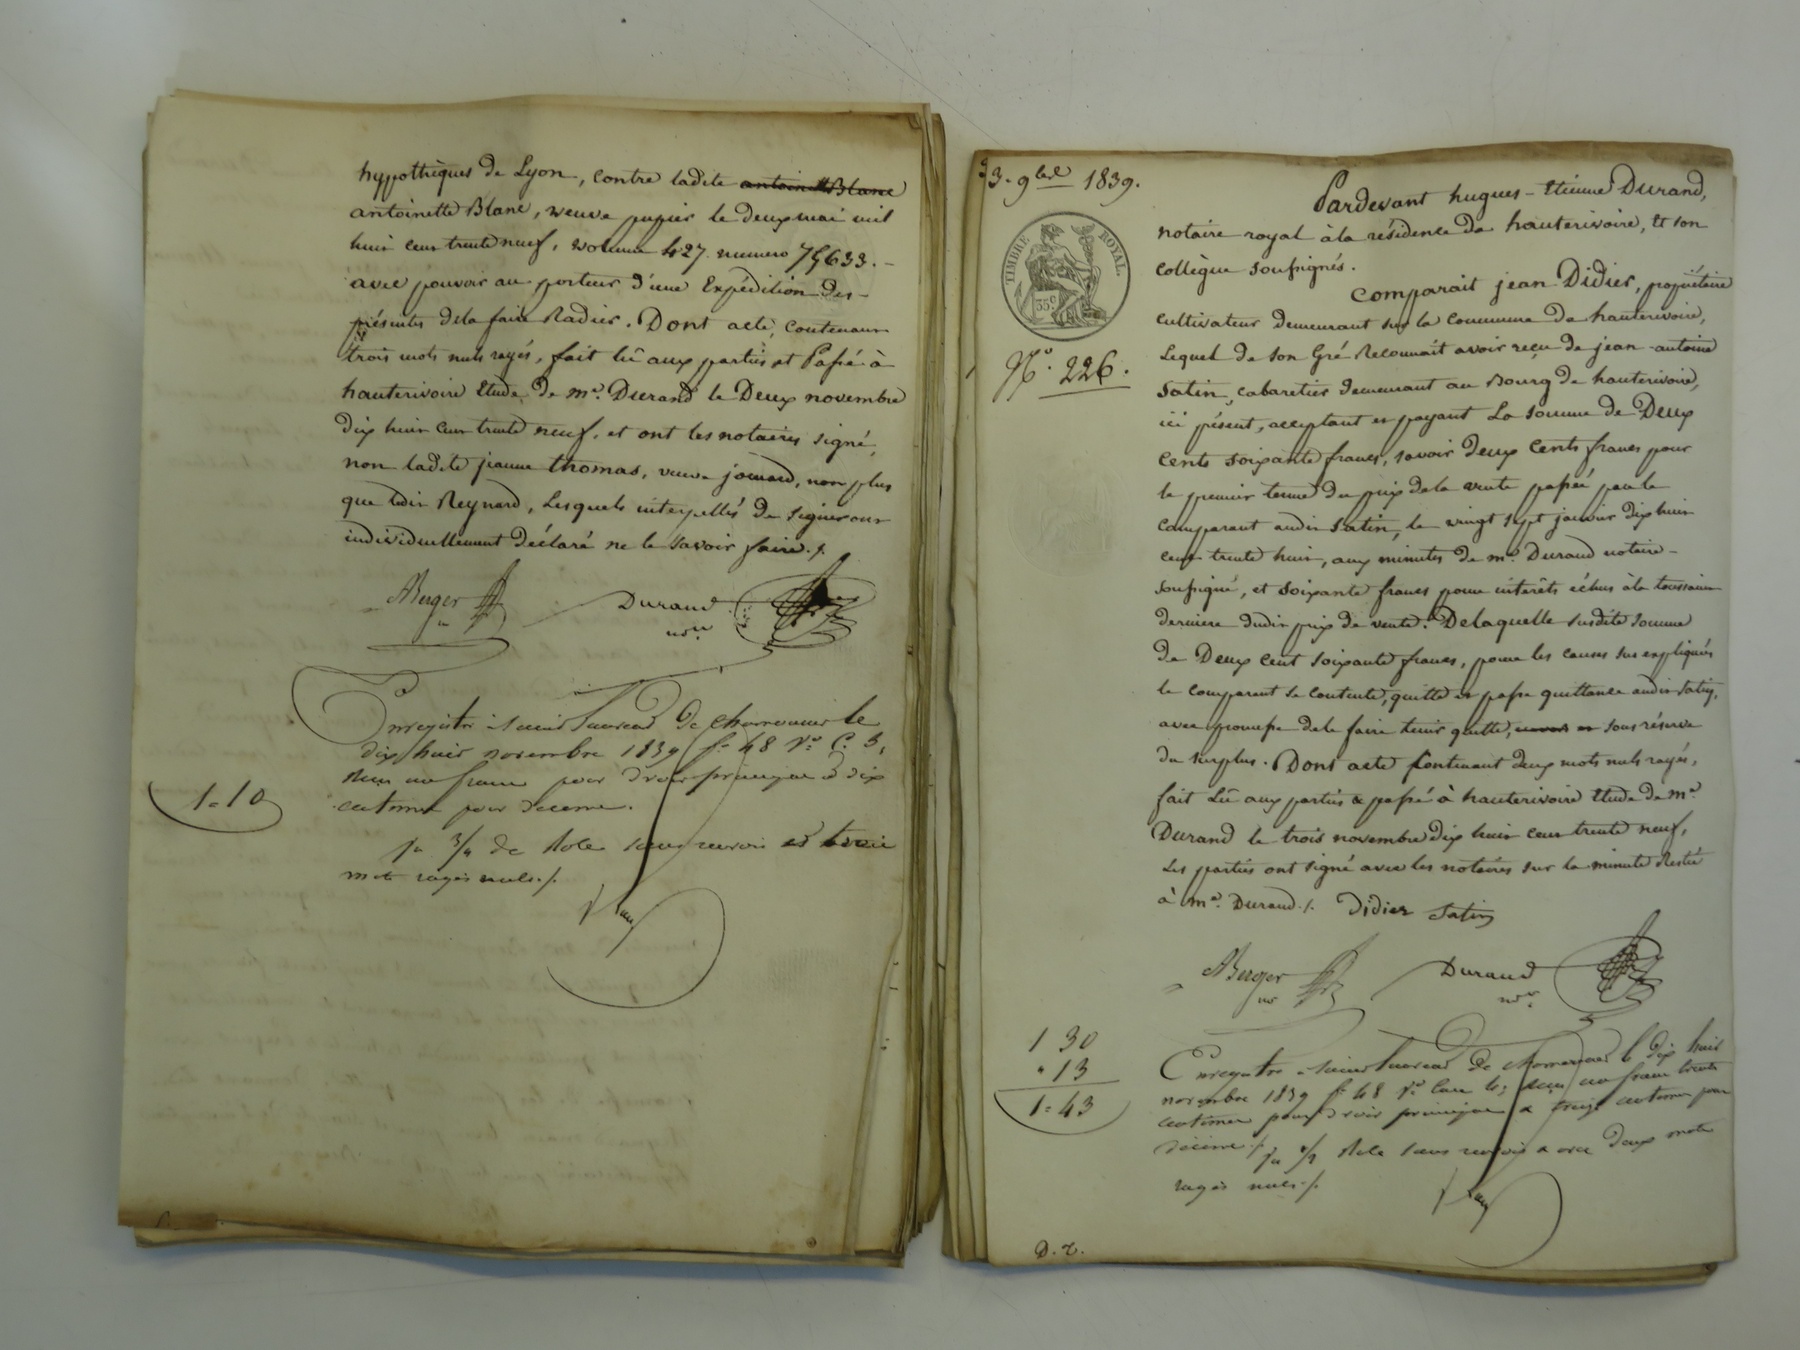 hypothèques de Lyon, contre ladite antoinette Blanc
antoinette Blanc, veuve papier le deux mai mil
huit cent trente neuf, volume 427. numero 75633. –
avec pouvoir au porteur d'une Expédition des
présentes de la faire Radier. Dont acte, contenant
trois mots nuls rayés, fait lû aux parties et Passé à
hauterivoire Etude de me. Durand le Deux novembre
dix huit cent trente neuf, et ont les notaires signé,
non ladite jeanne thomas, veuve jomard, non plus
que ledit Reynard, Lesquels interpellés de signer ont
individuellement déclaré ne le savoir faire./.
Berger
Durand
nore
Enregistré à Saint Laurent de chamousset le
dix huit novembre 1839 fo 48 Vo C. 3,
reçu un franc pour droit principal & dix
centimes pour decime.
1=10
3/4 de Role sans renvoi et trois
mots rayés nuls./.
3. 9bre 1839.
TIMBRE ROYAL.
35c
No. 226.
Pardevant hugues-Etienne Durand,
notaire royal à la résidence de hauterivoire, Et son
collègue soussignés.
Comparait jean Didier, propriétaire
cultivateur demeurant sur la Commune de hauterivoire,
Lequel de son Gré Reconnait avoir reçu de jean-antoine
Satin, cabaretier demeurant au Bourg de hauterivoire,
ici présent, acceptant et payant La somme de Deux
Cents soixante francs, savoir deux Cents francs pour
le premier terme du prix de la vente passée par le
Comparant audit Satin, le vingt sept janvier dix huit
cent trente huit, aux minutes de me. Durand notaire –
soussigné, et soixante francs pour intérêts échus à la toussaint
derniere dudit prix de vente. De laquelle susdite somme
de Deux cent soixante francs, pour les causes sus expliquées
le comparant se contente, quitte et passe quittance audit Satin,
avec promesse de le faire tenir quitte, envers et sous réserve
du surplus. Dont acte Contenant deux mots nuls rayés,
fait Lû aux parties & passé à hauterivoire Etude de me.
Durand le trois novembre dix huit cent trente neuf,
Les parties ont signé avec les notaires sur la minute Restée
à me. Durand./. Didier Satin
Berger
nre
Durand
nore.
1 30
" 13
1=43
Enregistré à Saint Laurent de chamousset le dix huit
novembre 1839 fo 48 Vo Case 4, reçu un franc trente
centimes pour droit principal & treize centimes pour
décime./.
1/2 Role sans renvoi & avec Deux mots
rayés nuls./.